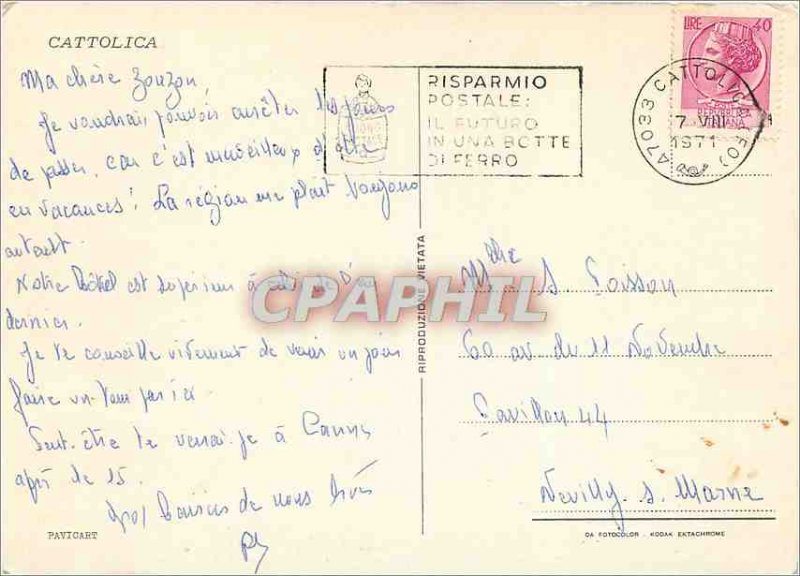 CATTOLICA
Ma chère Zouzou,
Je voudrais pouvoir arrêter les jours
de passer, car c'est merveilleux d'être
en vacances! La région me plait toujours
autant.
Notre Hôtel est supérieur à celui de l'an
dernier.
Je te conseille vivement de venir un jour
faire un tour par ici.
Peut-être te verrai-je à Cannes
après le 15.
Gros baisers de nous trois
RISPARMIO
POSTALE:
IL FUTURO
IN UNA BOTTE
DI FERRO
47033 CATTOLICA (FO)
7 VIII
1971
LIRE 40
REPUBBLICA
ITALIANA
Mlle S. Poisson
60 av du 11 Novembre
Pavillon 44
Neuilly s. Marne
RIPRODUZIONE VIETATA
CPAPHIL
PAVICART
DA FOTOCOLOR - KODAK EKTACHROME